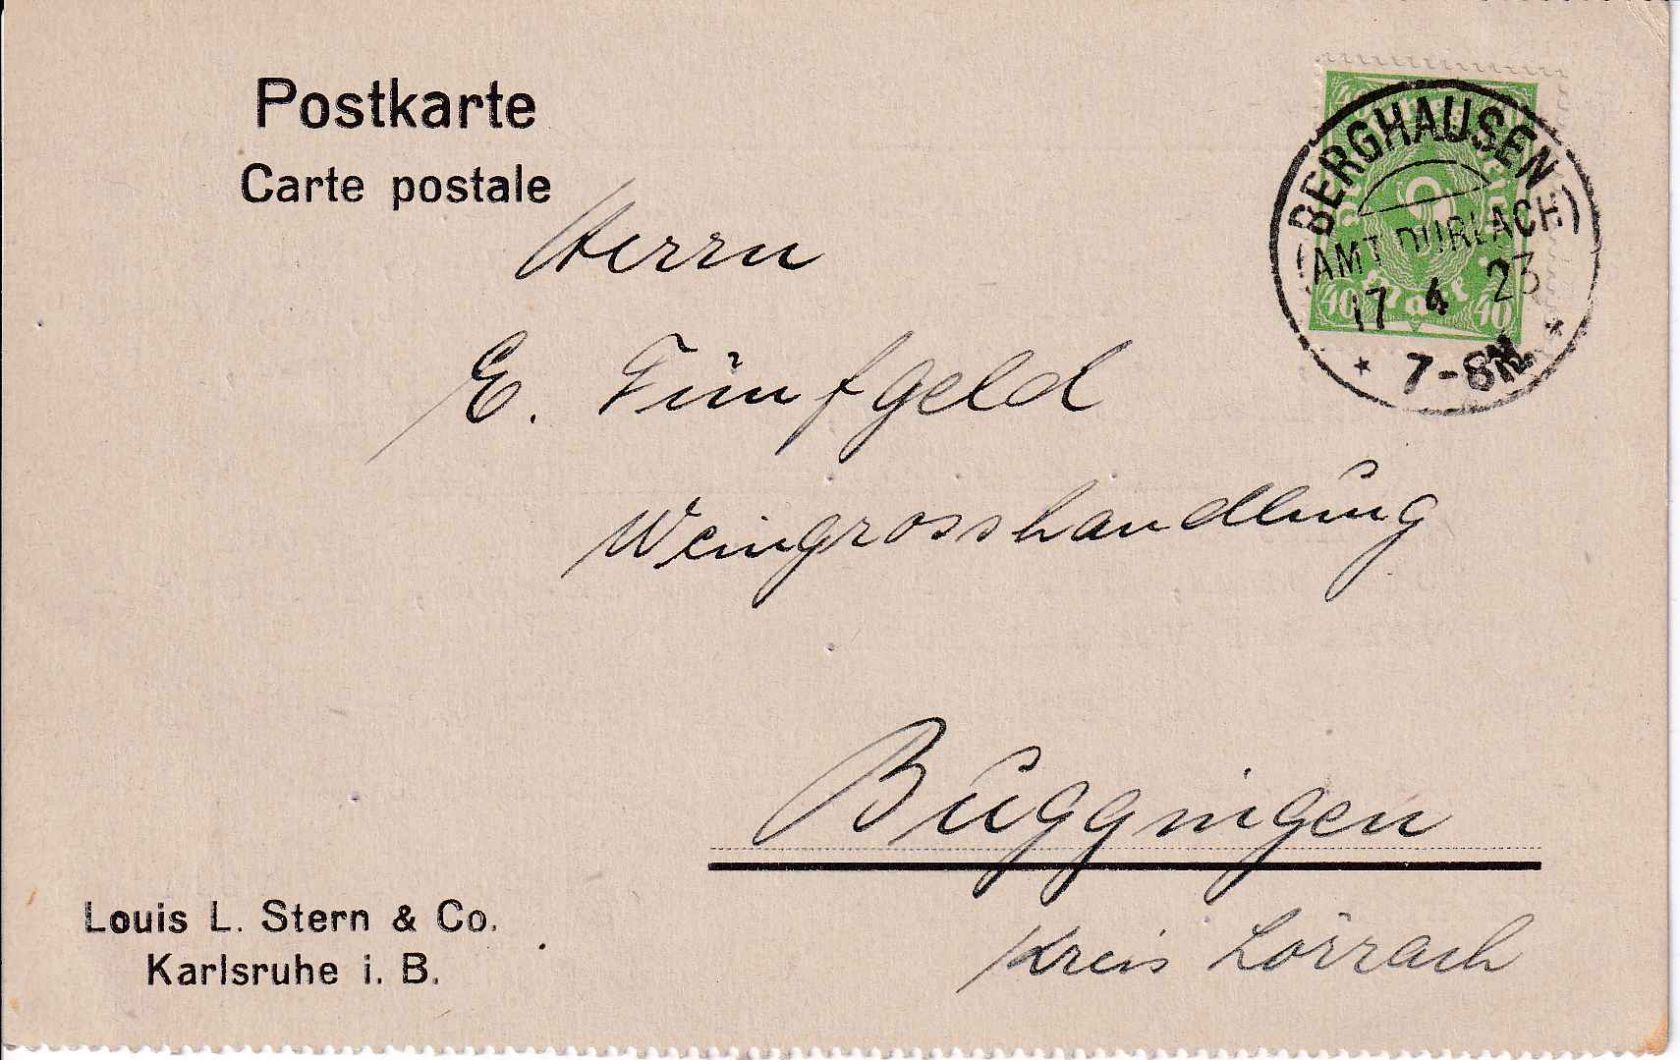 Postkarte
Carte postale
BERGHAUSEN
(AMT DURLACH)
17 4 23
* 7-8N. *
40 Mark 40
Herrn
E. Fünfgeld
Weingrosshandlung
Buggingen
Kreis Lörrach
Louis L. Stern & Co.
Karlsruhe i. B.